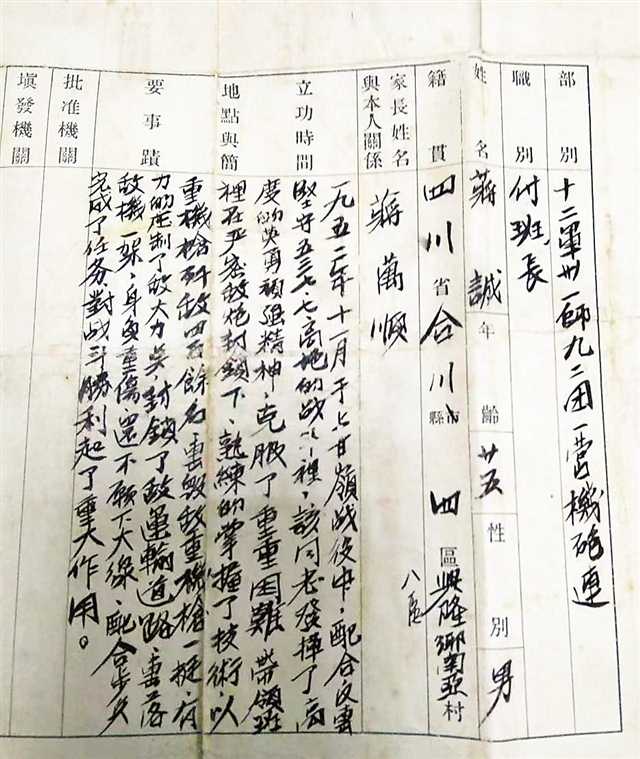 部別 十二軍卅一師九二团一营機砲連
職別 付班長
姓名 蔣誠 年齡 廿五 性別 男
籍貫 四川省合川縣市四區興隆鄉南亞村
八區
家長姓名與本人關係 蔣萬順
立功時間地點與簡要事蹟
一九五二年十一月于上甘嶺战役中,配合反击
堅守五三七.七高地的战斗裡,該同志發揮了高
度的英勇頑强精神,克服了重重困難 带領班
裡在严密敌炮封鎖下,熟練的掌握了技術,以
重機槍歼敌四百餘名,击毁敌重機槍一挺,有
力的压制了敌火力点封鎖了敌運輸道路,击落
敌機一架,身負重傷,還不願下火線,配合步兵
完成了任务對战斗勝利起了重大作用。
批准機關
填發機關